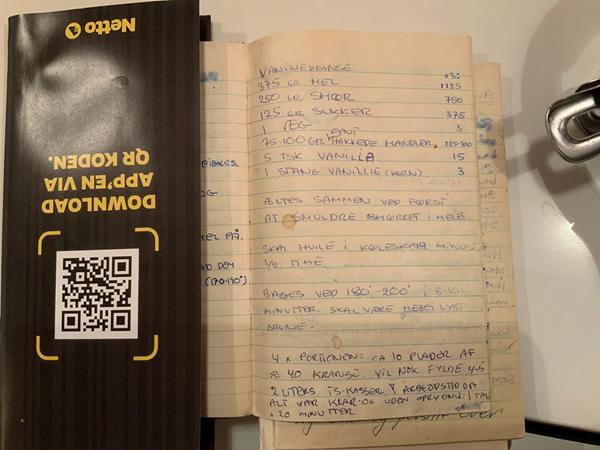 Netto
DOWNLOAD
APP'EN VIA
QR KODEN.
VANILLEKRANSE x3:
375 GR MEL 1125
250 GR SMØR 750
125 GR SUKKER 375
1 ÆG 3
75-100 GR FINT HAKKEDE MANDLER. 225-300
5 TSK. VANILLA 15
1 STANG VANILLIE (KORN) 3
ÆLTES SAMMEN VED FØRST
AT SMULDRE SMØRRET I MELET.
SKAL HVILE I KØLESKAB MINDS
1/2 TIME
BAGES VED 180°-200° I 8-10
MINUTTER. SKAL VÆRE MEGET LYST
BRUNE.
4 x PORTIONEN: CA 10 PLADER AF
40 KRANSE. VIL NOK FYLDE 4-5
2 LITERS IS-KASSER! ARBEJDSTID DA
ALT VAR KLAR OG UDEN OPRYDNIN: 1 TIME
+ 20 MINUTTER
MEL PÅ.
DEM
(170-190°)